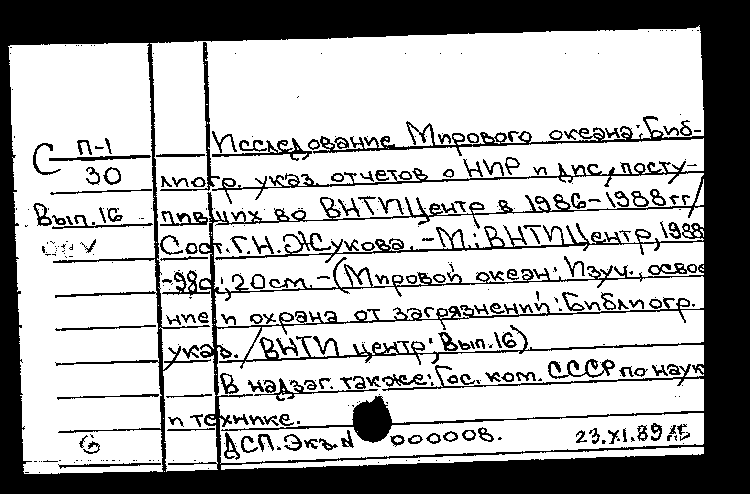 Исследование Мирового океана: Биб-
С П-1
30
лиогр. указ. отчетов о НИР и дис., посту-
Вып. 16
пивших во ВНТИЦентр в 1986-1988 гг/
Сост. Г.Н. Жукова. - М.: ВНТИЦентр, 1988
-98с.; 20см. - (Мировой океан: Изуч., освое
ние и охрана от загрязнений: Библиогр.
указ. / ВНТИ центр; Вып. 16)
В надзаг. также: Гос. ком. СССР по наук
и технике.
ДСП. Экз. N 000008.
23.XI.89